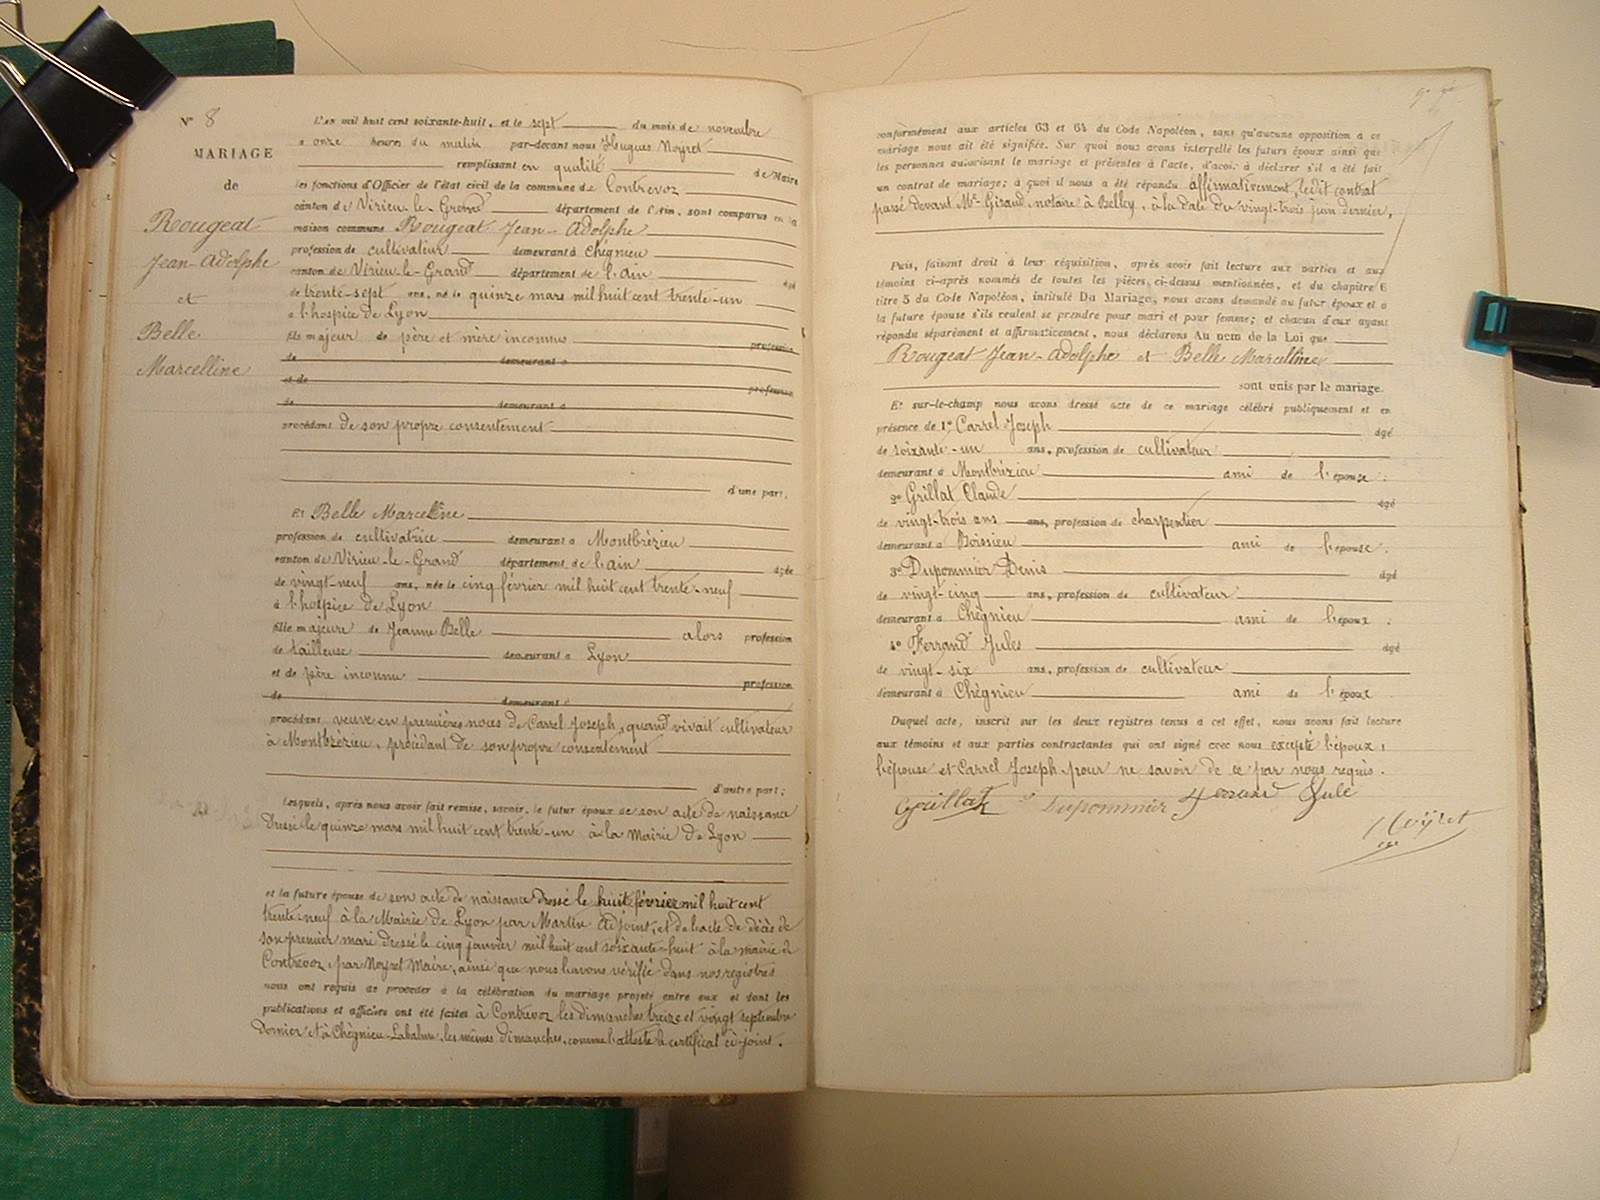 N° 8
MARIAGE
de
Rougeat
Jean-Adolphe
et
Belle
Marcelline
L'an mil huit cent soixante-huit, et le sept du mois de novembre
à onze heures du matin par-devant nous Hugues Noyret
remplissant en qualité de Maire
les fonctions d'Officier de l'état civil de la commune de Contrevoz
canton de Virieu-le-Grand département de l'Ain, sont comparus en la
maison commune Rougeat Jean-Adolphe
profession de cultivateur demeurant à Chégnieu
canton de Virieu-le-Grand département de l'ain âgé
de trente-sept ans, né le quinze mars mil huit cent trente-un
à l'hospice de Lyon
fils majeur de père et mère inconnus profession
de demeurant à
et de profession
de demeurant à
procédant de son propre consentement
d'une part,
Et Belle Marceline
profession de cultivatrice demeurant à Montbrézieu
canton de Virieu-le-Grand département de l'ain âgée
de vingt-neuf ans, née le cinq février mil huit cent trente-neuf
à l'hospice de Lyon
fille majeure de Jeanne Belle alors profession
de tailleuse demeurant à Lyon
et de père inconnu profession
de demeurant à
procédant veuve en premières noces de Carrel Joseph, quand vivait cultivateur
à Montbrézieu, procédant de son propre consentement
d'autre part;
Lesquels, après nous avoir fait remise, savoir, le futur époux de son acte de naissance
Dressé le quinze mars mil huit cent trente-un à la Mairie de Lyon
et la future épouse de son acte de naissance Dressé le huit février mil huit cent
trente-neuf à la Mairie de Lyon par Martin Adjoint, et de l'acte de décès de
son premier mari dressé le cinq janvier mil huit cent soixante-huit à la mairie de
Contrevoz, par Noyret Maire, ainsi que nous l'avons vérifié dans nos registres
nous ont requis de procéder à la célébration du mariage projeté entre eux et dont les
publications et affiches ont été faites à Contrevoz les dimanches treize et vingt septembre
Dernier et à Chégnieu-Labalme, les mêmes dimanches, comme l'atteste le certificat ci-joint.
conformément aux articles 63 et 64 du Code Napoléon, sans qu'aucune opposition à ce
mariage nous ait été signifiée. Sur quoi nous avons interpellé les futurs époux ainsi que
les personnes autorisant le mariage et présentes à l'acte, d'avoir à déclarer s'il a été fait
un contrat de mariage; à quoi il nous a été répondu affirmativement, ledit contrat
passé devant Me Giraud, notaire à Belley, à la date du vingt-trois juin dernier,
Puis, faisant droit à leur réquisition, après avoir fait lecture aux parties et aux
témoins ci-après nommés de toutes les pièces ci-dessus mentionnées, et du chapitre 6
titre 5 du Code Napoléon, intitulé Du Mariage, nous avons demandé au futur époux et à
la future épouse s'ils veulent se prendre pour mari et pour femme; et chacun d'eux ayant
répondu séparément et affirmativement, nous déclarons Au nom de la Loi que
Rougeat Jean-Adolphe et Belle Marcelline
sont unis par le mariage.
Et sur-le-champ nous avons dressé acte de ce mariage célébré publiquement et en
présence de 1° Carrel Joseph âgé
de soixante-un ans, profession de cultivateur
demeurant à Montbrézieu ami de l'épouse;
2° Grillat Claude âgé
de vingt-trois ans ans, profession de charpentier
demeurant à Boissieu ami de l'épouse;
3° Dupommier Denis âgé
de vingt-cinq ans, profession de cultivateur
demeurant à Chégnieu ami de l'époux;
4° Ferrand Jules âgé
de vingt-six ans, profession de cultivateur
demeurant à Chégnieu ami de l'époux
Duquel acte, inscrit sur les deux registres tenus à cet effet, nous avons fait lecture
aux témoins et aux parties contractantes qui ont signé avec nous excepté l'époux,
l'épouse et Carrel Joseph pour ne savoir de ce par nous requis.
Grillat Dupommier Ferrand Jule
Noyret